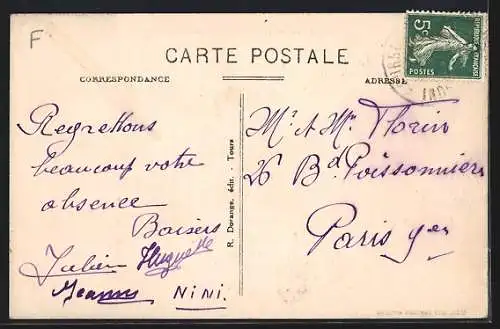 F
CARTE POSTALE
CORRESPONDANCE
ADRESSE
5c
POSTES
REPUBLIQUE FRANÇAISE
Regrettons
beaucoup votre
absence
Baisers
Julien Huguette
Jeanne NINI.
R. Dorange, édit. - Tours
Mr & Mme Florin
26 Bd Poissonnière
Paris 9me